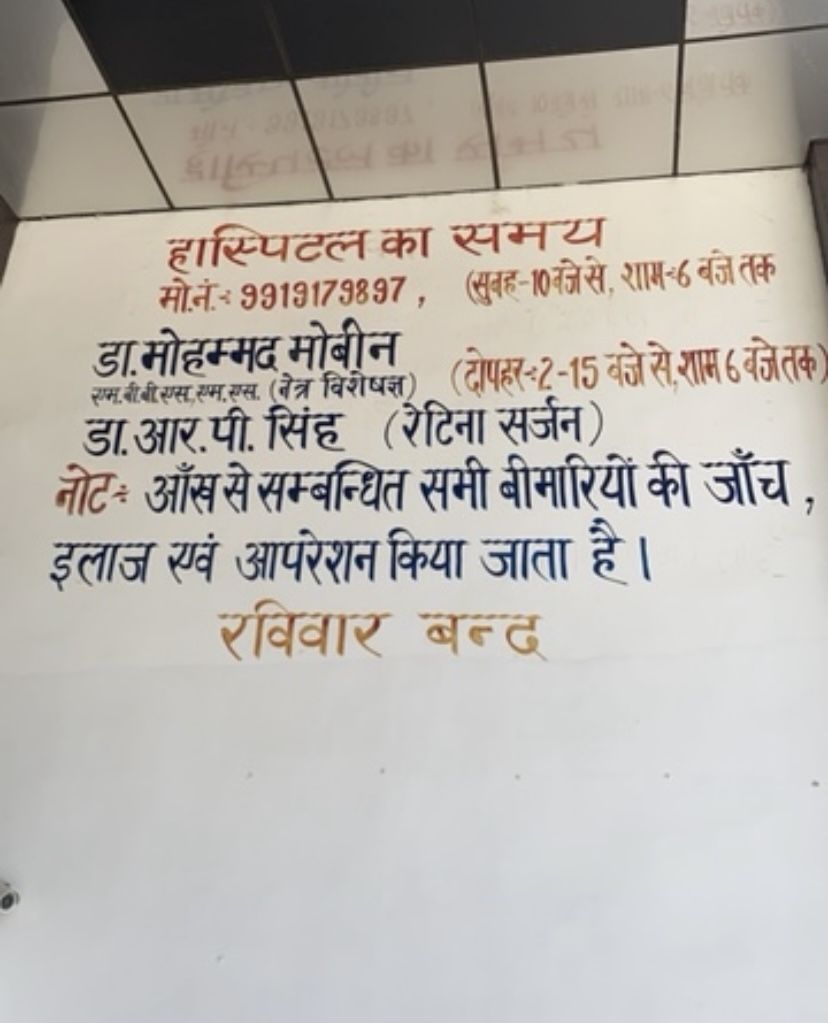 हास्पिटल का समय
मो.नं.:- 9919179897, (सुबह-10 बजे से, शाम:-6 बजे तक
डा. मोहम्मद मोबीन
एम.बी.बी.एस.,एम.एस. (नेत्र विशेषज्ञ) (दोपहर:-2-15 बजे से, शाम 6 बजे तक)
डा. आर.पी. सिंह (रेटिना सर्जन)
नोट:- आँख से सम्बन्धित सभी बीमारियों की जाँच,
इलाज एवं आपरेशन किया जाता है।
रविवार बन्द